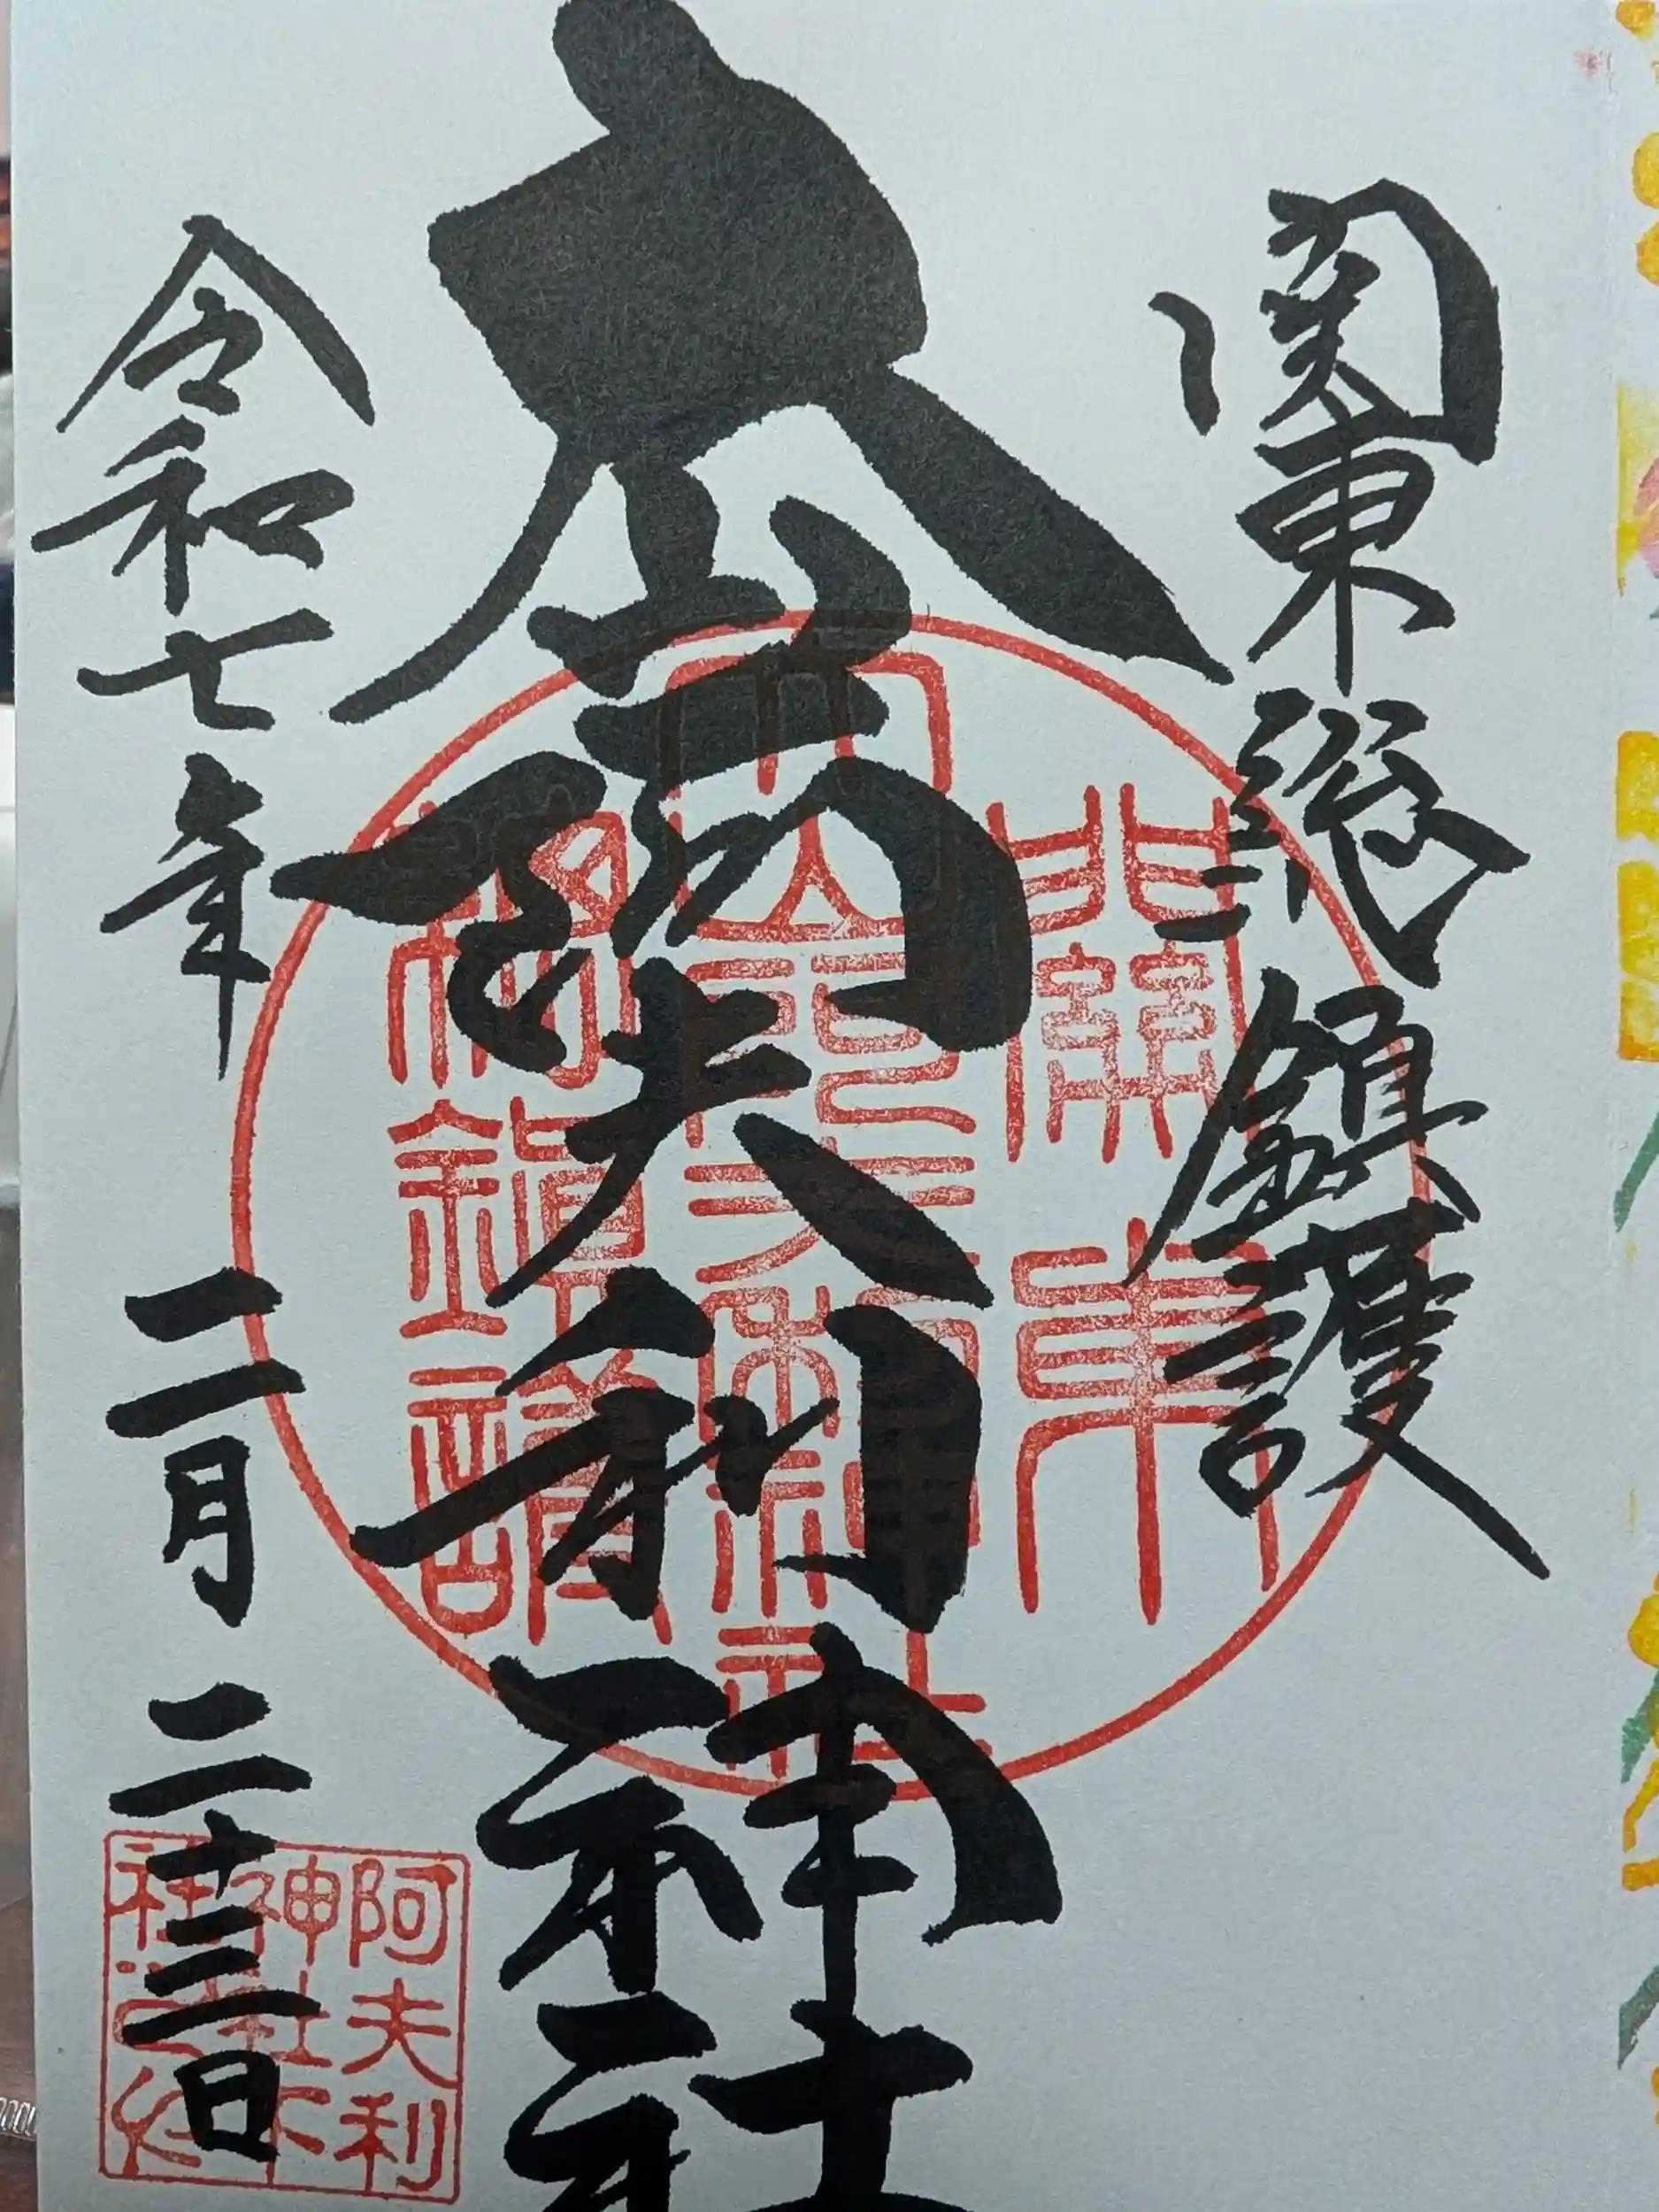 関東総鎮護
大山阿夫利神社
令和七年 二月 二十三日
關東
大山阿夫利神社
鎮護
阿夫利
神社下
社之印